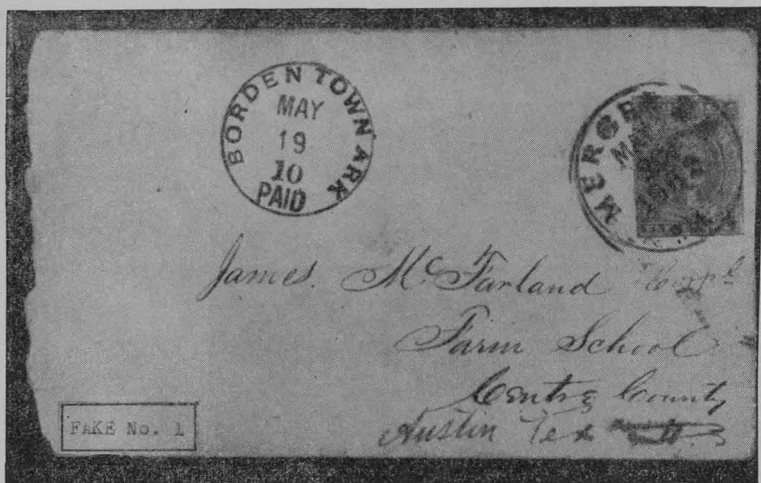 BORDEN TOWN ARK
MAY
19
10
PAID
MERCER
James. McFarland
Farm School
Centre County
Austin Tex
FAKE No. 1